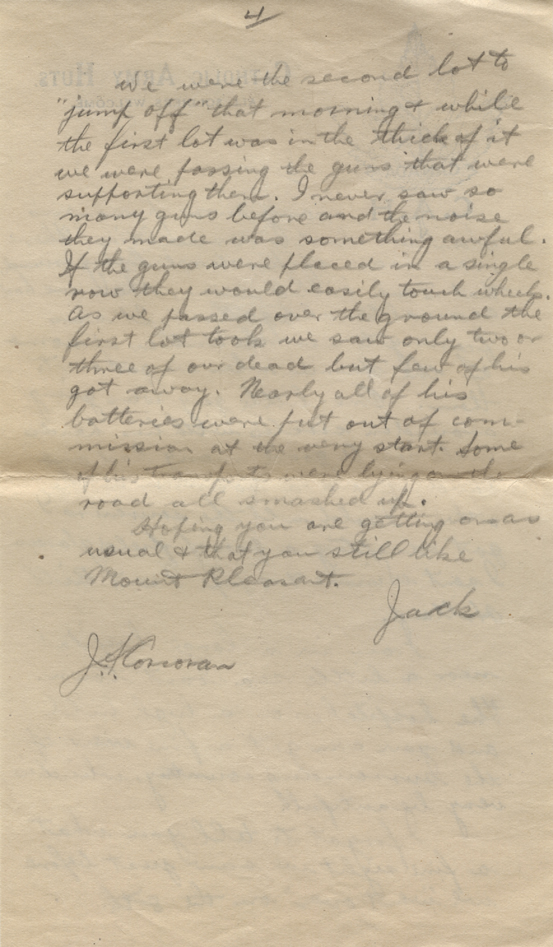 4
we were the second lot to
"jump off" that morning & while
the first lot was in the thick of it
we were passing the guns that were
supporting them. I never saw so
many guns before and the noise
they made was something awful.
If the guns were placed in a single
row they would easily touch wheels.
As we passed over the ground the
first lot took we saw only two or
three of our dead but few of his
got away. Nearly all of his
batteries were put out of com-
mission at the very start. Some
of his transports were lying on the
road all smashed up.
Hoping you are getting on as
usual & that you still like
Mount Pleasant.
Jack
Corcoran